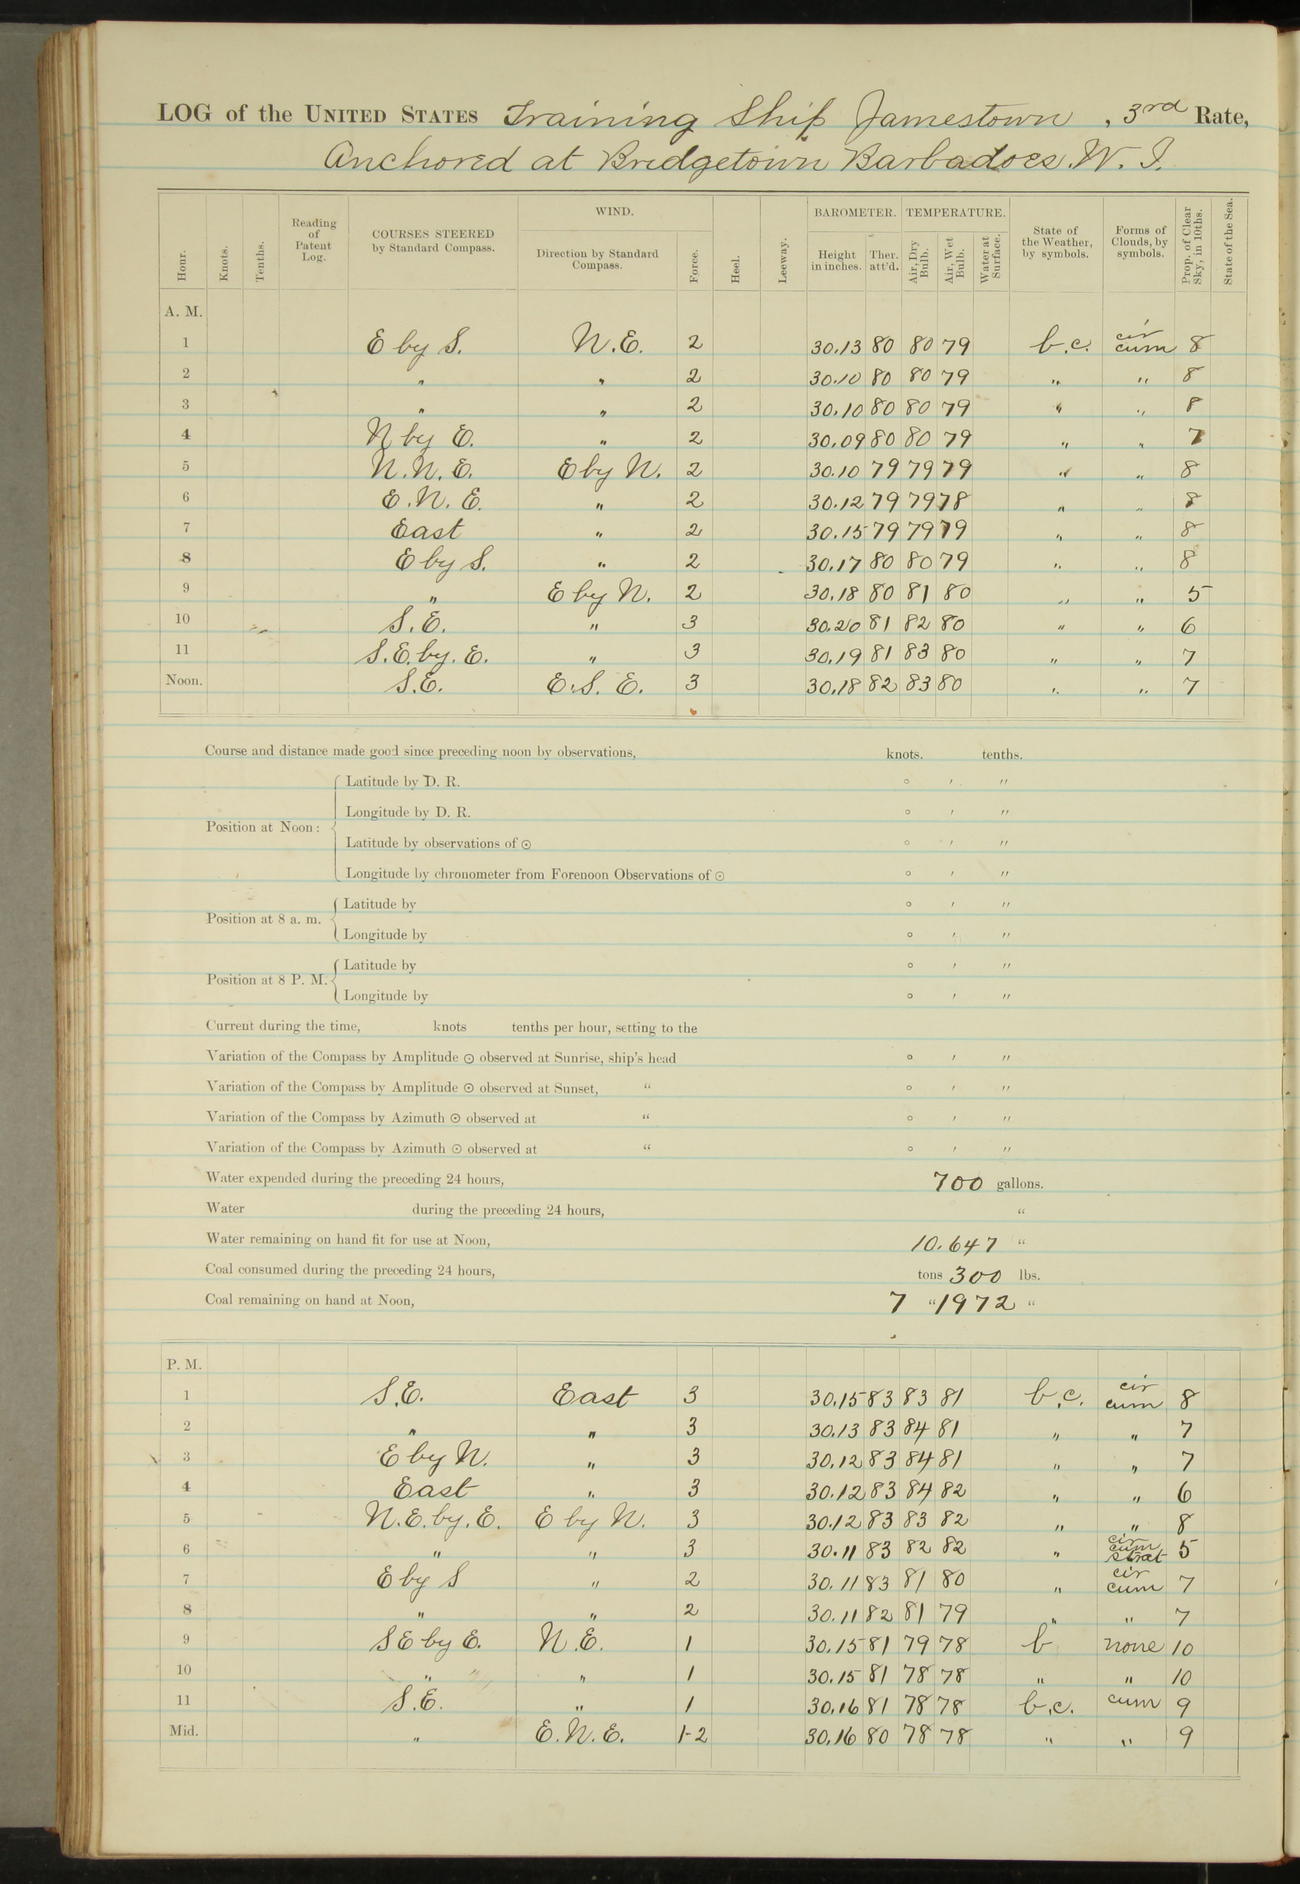 LOG of the UNITED STATES Training Ship Jamestown, 3rd Rate,
Anchored at Bridgetown Barbadoes W. I.
Hour. Knots. Tenths. Reading of Patent Log. COURSES STEERED by Standard Compass. WIND. Direction by Standard Compass. Force. Heel. Leeway. BAROMETER. Height in inches. Ther. att'd. TEMPERATURE. Air, Dry Bulb. Air, Wet Bulb. Water at Surface. State of the Weather, by symbols. Forms of Clouds, by symbols. Prop. of Clear Sky, in 10ths. State of the Sea.
A. M.
1 E by S. N.E. 2 30.13 80 80 79 b.c. cir cum 8
2 " " 2 30.10 80 80 79 " " 8
3 " " 2 30.10 80 80 79 " " 8
4 N by E. " 2 30.09 80 80 79 " " 7
5 N.N.E. E by N. 2 30.10 79 79 79 " " 8
6 E.N.E. " 2 30.12 79 79 78 " " 8
7 East " 2 30.15 79 79 79 " " 8
8 E by S. " 2 30.17 80 80 79 " " 8
9 " E by N. 2 30.18 80 81 80 " " 5
10 S.E. " 3 30.20 81 82 80 " " 6
11 S.E. by. E. " 3 30.19 81 83 80 " " 7
Noon. S.E. E.S.E. 3 30.18 82 83 80 " " 7
Course and distance made good since preceding noon by observations, knots. tenths.
Position at Noon: Latitude by D. R. ° ′ ″
Longitude by D. R. ° ′ ″
Latitude by observations of ⊙ ° ′ ″
Longitude by chronometer from Forenoon Observations of ⊙ ° ′ ″
Position at 8 a. m. Latitude by ° ′ ″
Longitude by ° ′ ″
Position at 8 P. M. Latitude by ° ′ ″
Longitude by ° ′ ″
Current during the time, knots tenths per hour, setting to the
Variation of the Compass by Amplitude ⊙ observed at Sunrise, ship's head ° ′ ″
Variation of the Compass by Amplitude ⊙ observed at Sunset, " ° ′ ″
Variation of the Compass by Azimuth ⊙ observed at " ° ′ ″
Variation of the Compass by Azimuth ⊙ observed at " ° ′ ″
Water expended during the preceding 24 hours, 700 gallons.
Water during the preceding 24 hours, "
Water remaining on hand fit for use at Noon, 10.647 "
Coal consumed during the preceding 24 hours, tons 300 lbs.
Coal remaining on hand at Noon, 7 " 1972 "
P. M.
1 S.E. East 3 30.15 83 83 81 b.c. cir cum 8
2 " " 3 30.13 83 84 81 " " 7
3 E by N. " 3 30.12 83 84 81 " " 7
4 East " 3 30.12 83 84 82 " " 6
5 N.E. by. E. E by N. 3 30.12 83 83 82 " " 8
6 " " 3 30.11 83 82 82 " cir cum strat 5
7 E by S " 2 30.11 83 81 80 " cir cum 7
8 " " 2 30.11 82 81 79 " " 7
9 SE by E. N.E. 1 30.15 81 79 78 b none 10
10 " " 1 30.15 81 78 78 " " 10
11 S.E. " 1 30.16 81 78 78 b.c. cum 9
Mid. " E.N.E. 1-2 30.16 80 78 78 " " 9